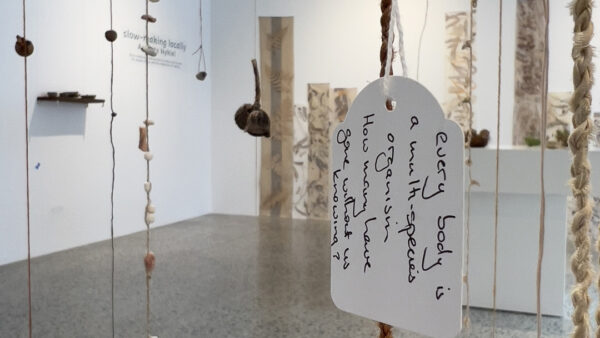 slow-making locally
every body is
a multi-species
organism
How many have
gone without us
knowing?